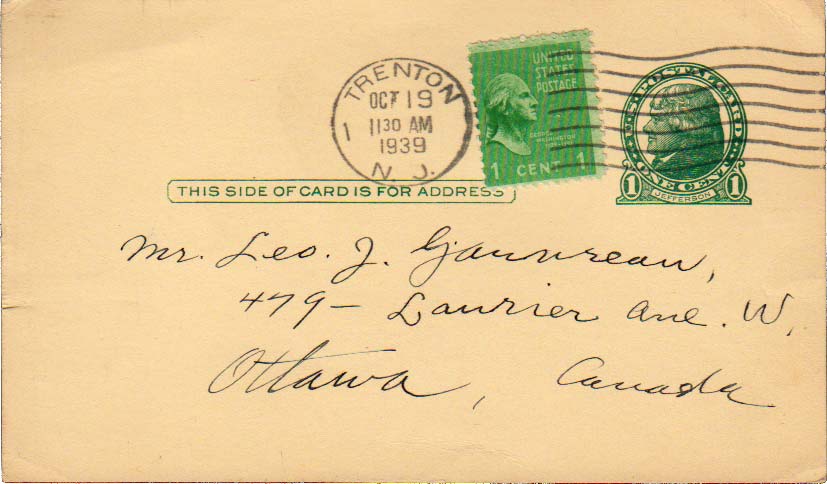 TRENTON
OCT 19
1 1130 AM
1939
N. J.
UNITED
STATES
POSTAGE
GEORGE
WASHINGTON
1 CENT 1
U.S. POSTAL CARD
ONE CENT
1 JEFFERSON 1
THIS SIDE OF CARD IS FOR ADDRESS
Mr. Leo. J.
479 - Laurier Ave. W,
Ottawa, Canada